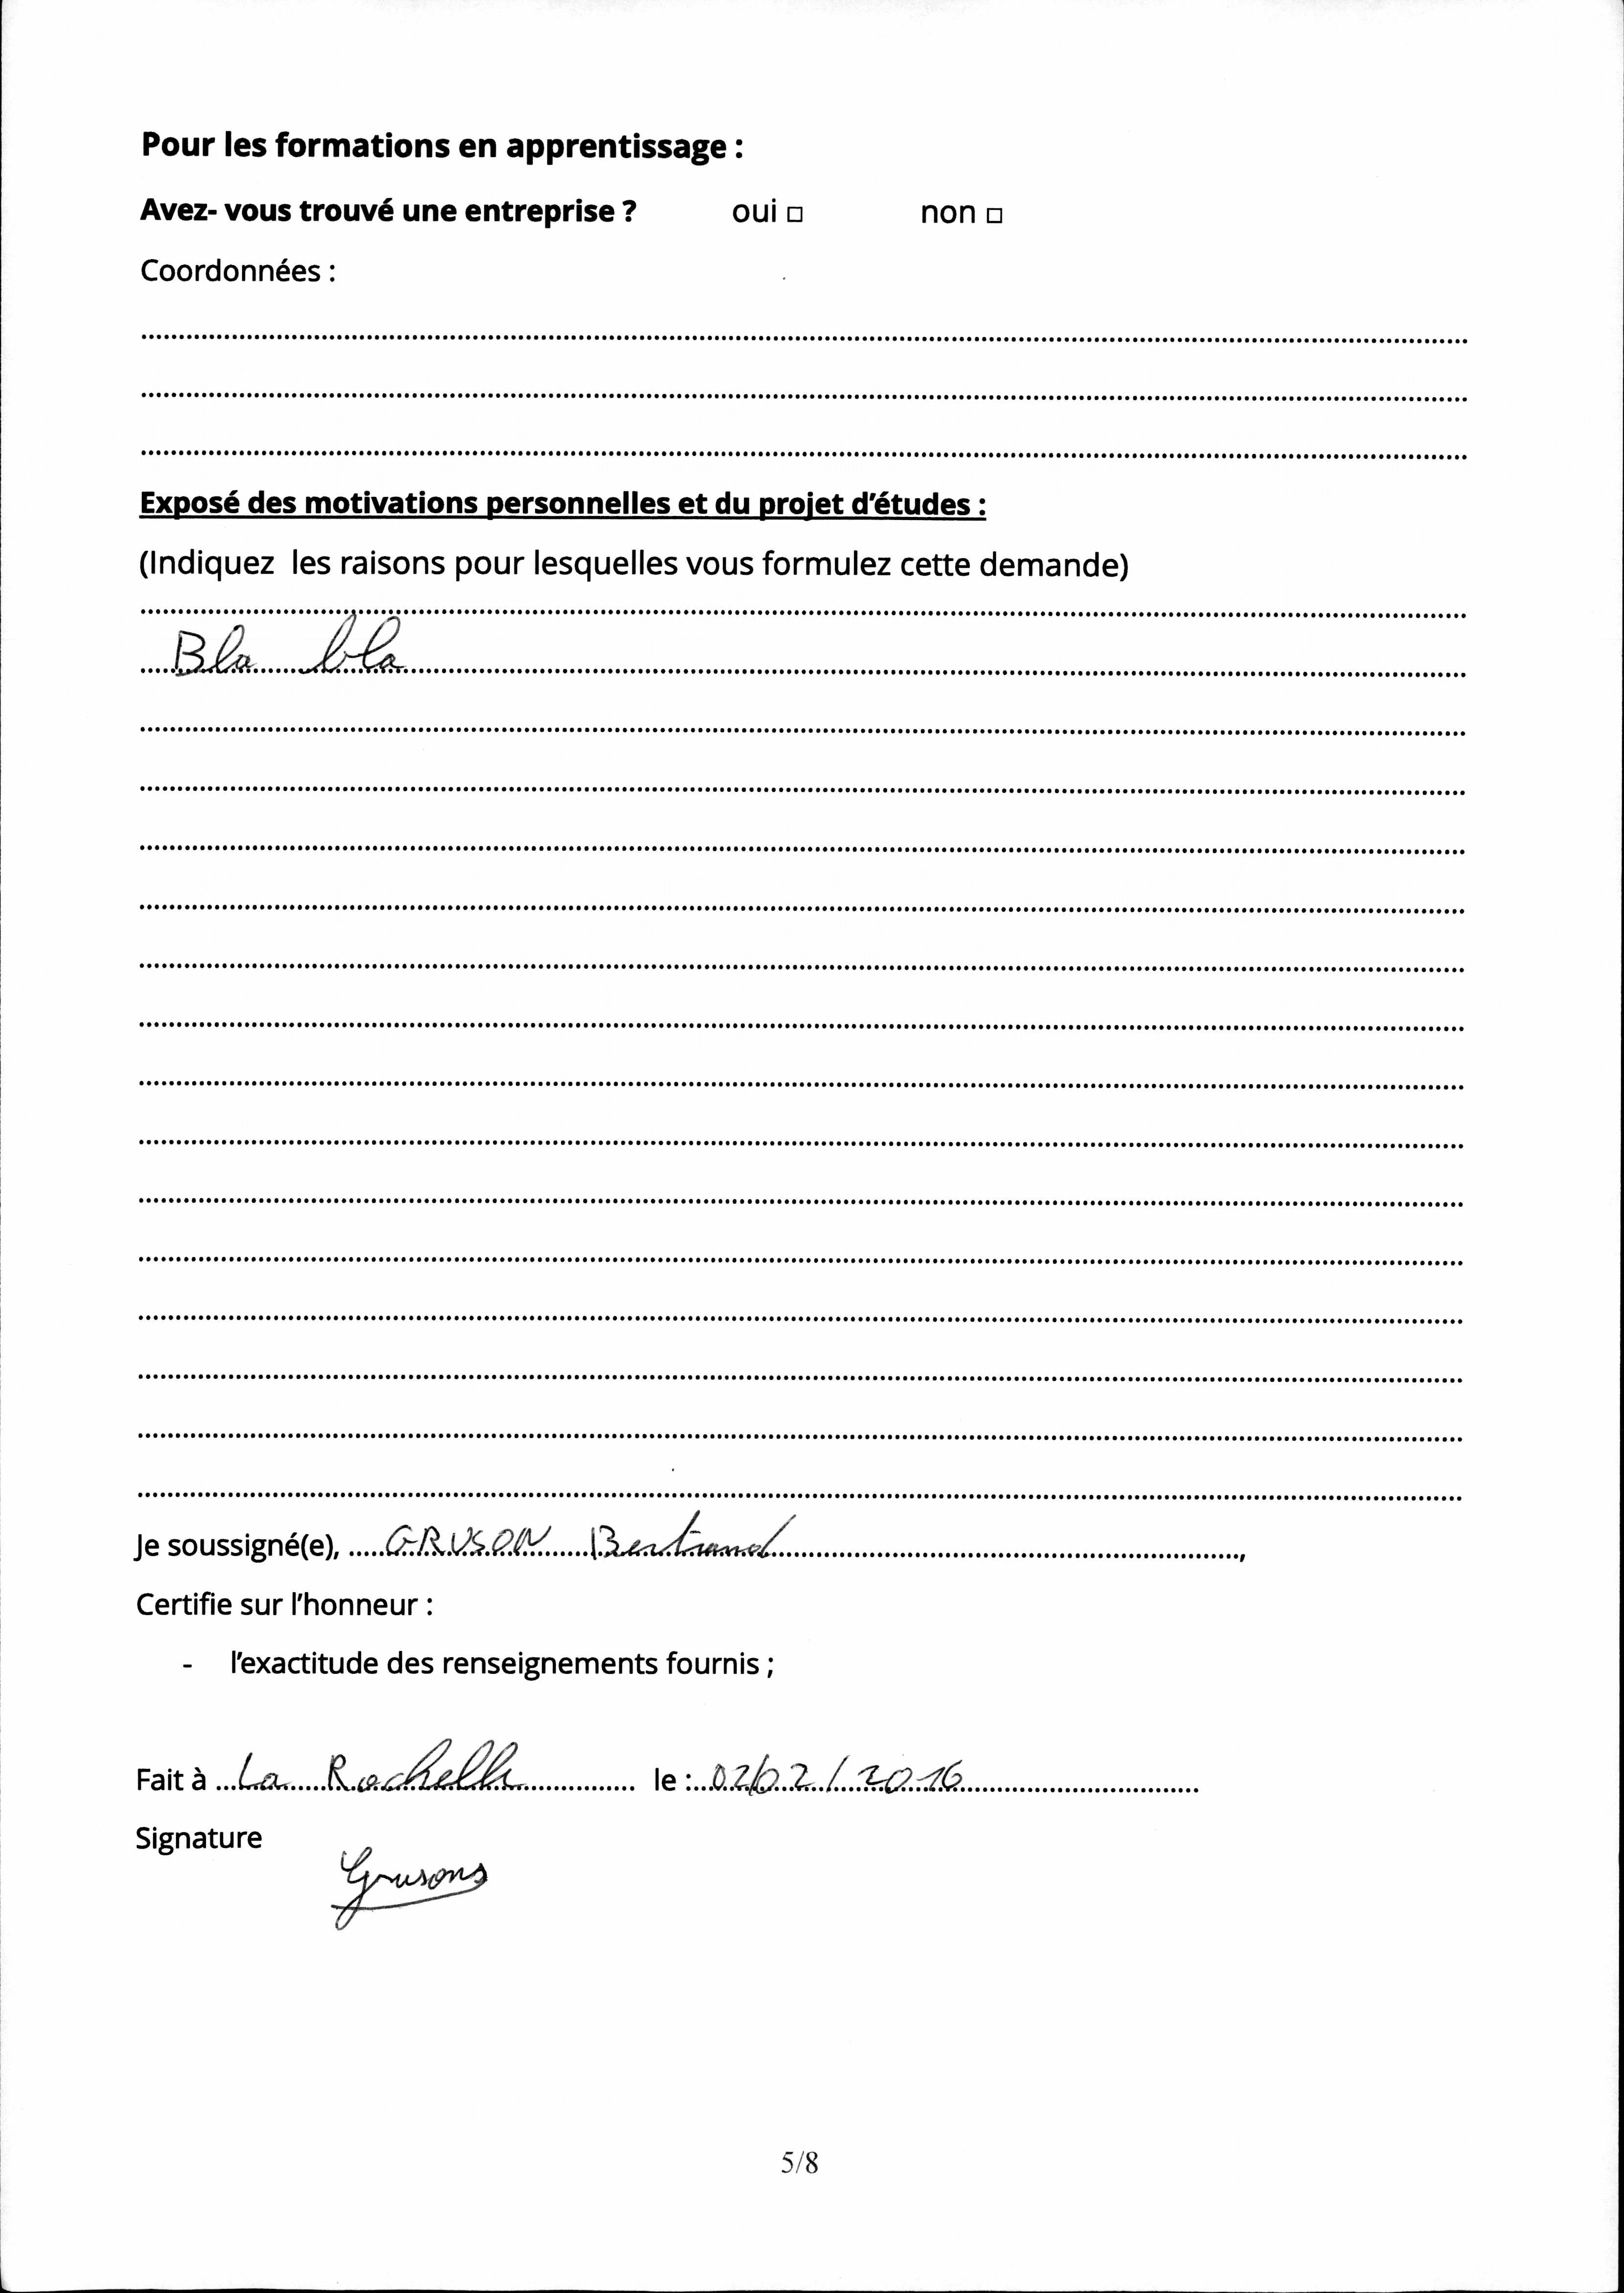 Pour les formations en apprentissage :
Avez- vous trouvé une entreprise ? oui □ non □
Coordonnées :
Exposé des motivations personnelles et du projet d'études :
(Indiquez les raisons pour lesquelles vous formulez cette demande)
Bla bla
Je soussigné(e), GRUSON Bertrand,
Certifie sur l'honneur :
- l'exactitude des renseignements fournis ;
Fait à La Rochelle le : 02/02/2016
Signature
Grusons
5/8